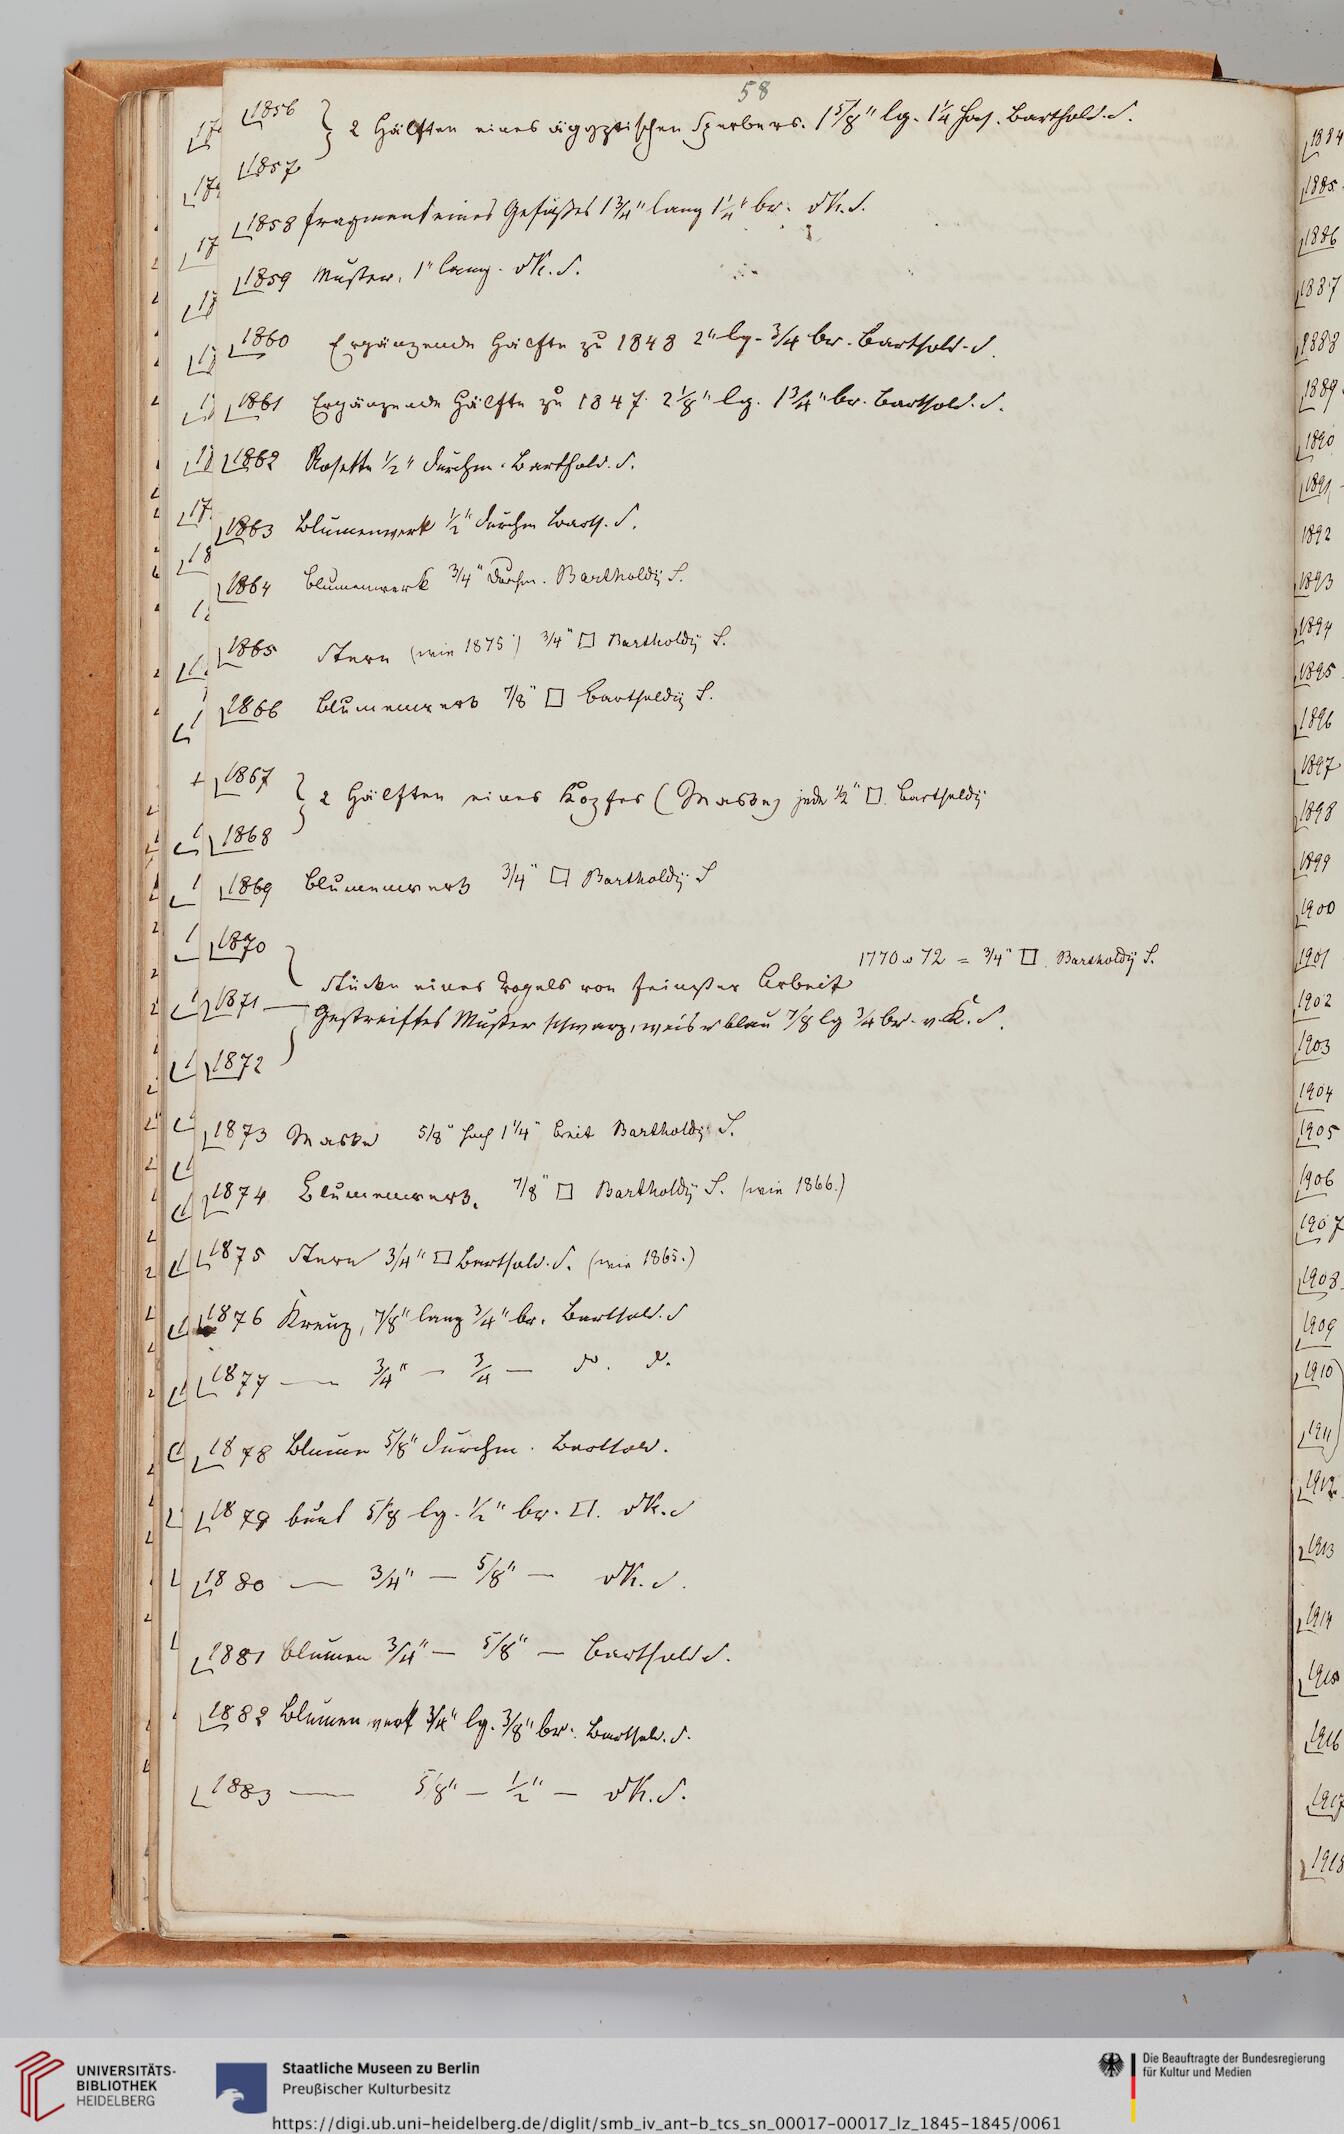 58
1856 } 2 Hälften eines ägyptischen Sperbers. 1 5/8" lg. 1 1/4 hoch. Barthold. S.
1857
1858 Fragment eines Gefäßes 1 3/4" lang 1 1/4" br. vK. S.
1859 Muster, 1" lang. vK. S.
1860 Ergänzende Hälfte zu 1848 2" lg. 3/4 br. Barthold. S.
1861 Ergänzende Hälfte zu 1847. 2 1/8" lg. 1 3/4" br. Barthold. S.
1862 Rosette 1/2" durchm. Barthold. S.
1863 Blumenwerk 1/2" durchm Barth. S.
1864 Blumenwerk 3/4" durchm. Bartholdÿ S.
1865 Stern (wie 1875) 3/4" □ Bartholdÿ S.
1866 Blumenwerk 7/8" □ Bartholdÿ S.
+ 1867 } 2 Hälften eines Kopfes (Maske) jede 1/2" □. Bartholdÿ
1868
1869 Blumenwerk 3/4" □ Bartholdÿ S
1870
1770 u 72 = 3/4" □. Bartholdÿ S.
Stücke eines Vogels von feinster Arbeit
1871 — Gestreiftes Muster schwarz, weis u blau 7/8 lg 3/4 br. v. K. S.
1872
1873 Maske 5/8" hoch 1 1/4" breit Bartholdÿ S.
1874 Blumenwerk. 7/8" □ Bartholdÿ S. (wie 1866.)
1875 Stern 3/4" □ Barthold. S. (wie 1865.)
1876 Kreuz, 7/8" lang 3/4" br. Barthold. S
1877 — 3/4" — 3/4 — do. S.
1878 Blume 5/8" durchm. Barthold.
1879 bunt 5/8 lg. 1/2" br. □. vK. S
1880 — 3/4" — 5/8" — vK. S.
1881 Blumen 3/4" — 5/8" — Barthold S.
1882 Blumenwerk 3/4" lg. 3/8" br. Barthold. S.
1883 — 5/8" — 1/2" — vK. S.
1884
1885
1886
1887
1888
1889
1890
1891
1892
1893
1894
1895
1896
1897
1898
1899
1900
1901
1902
1903
1904
1905
1906
1907
1908
1909
1910
1911
1912
1913
1914
1915
1916
1917
1918
UNIVERSITÄTS-
BIBLIOTHEK
HEIDELBERG
Staatliche Museen zu Berlin
Preußischer Kulturbesitz
Die Beauftragte der Bundesregierung
für Kultur und Medien
https://digi.ub.uni-heidelberg.de/diglit/smb_iv_ant-b_tcs_sn_00017-00017_lz_1845-1845/0061